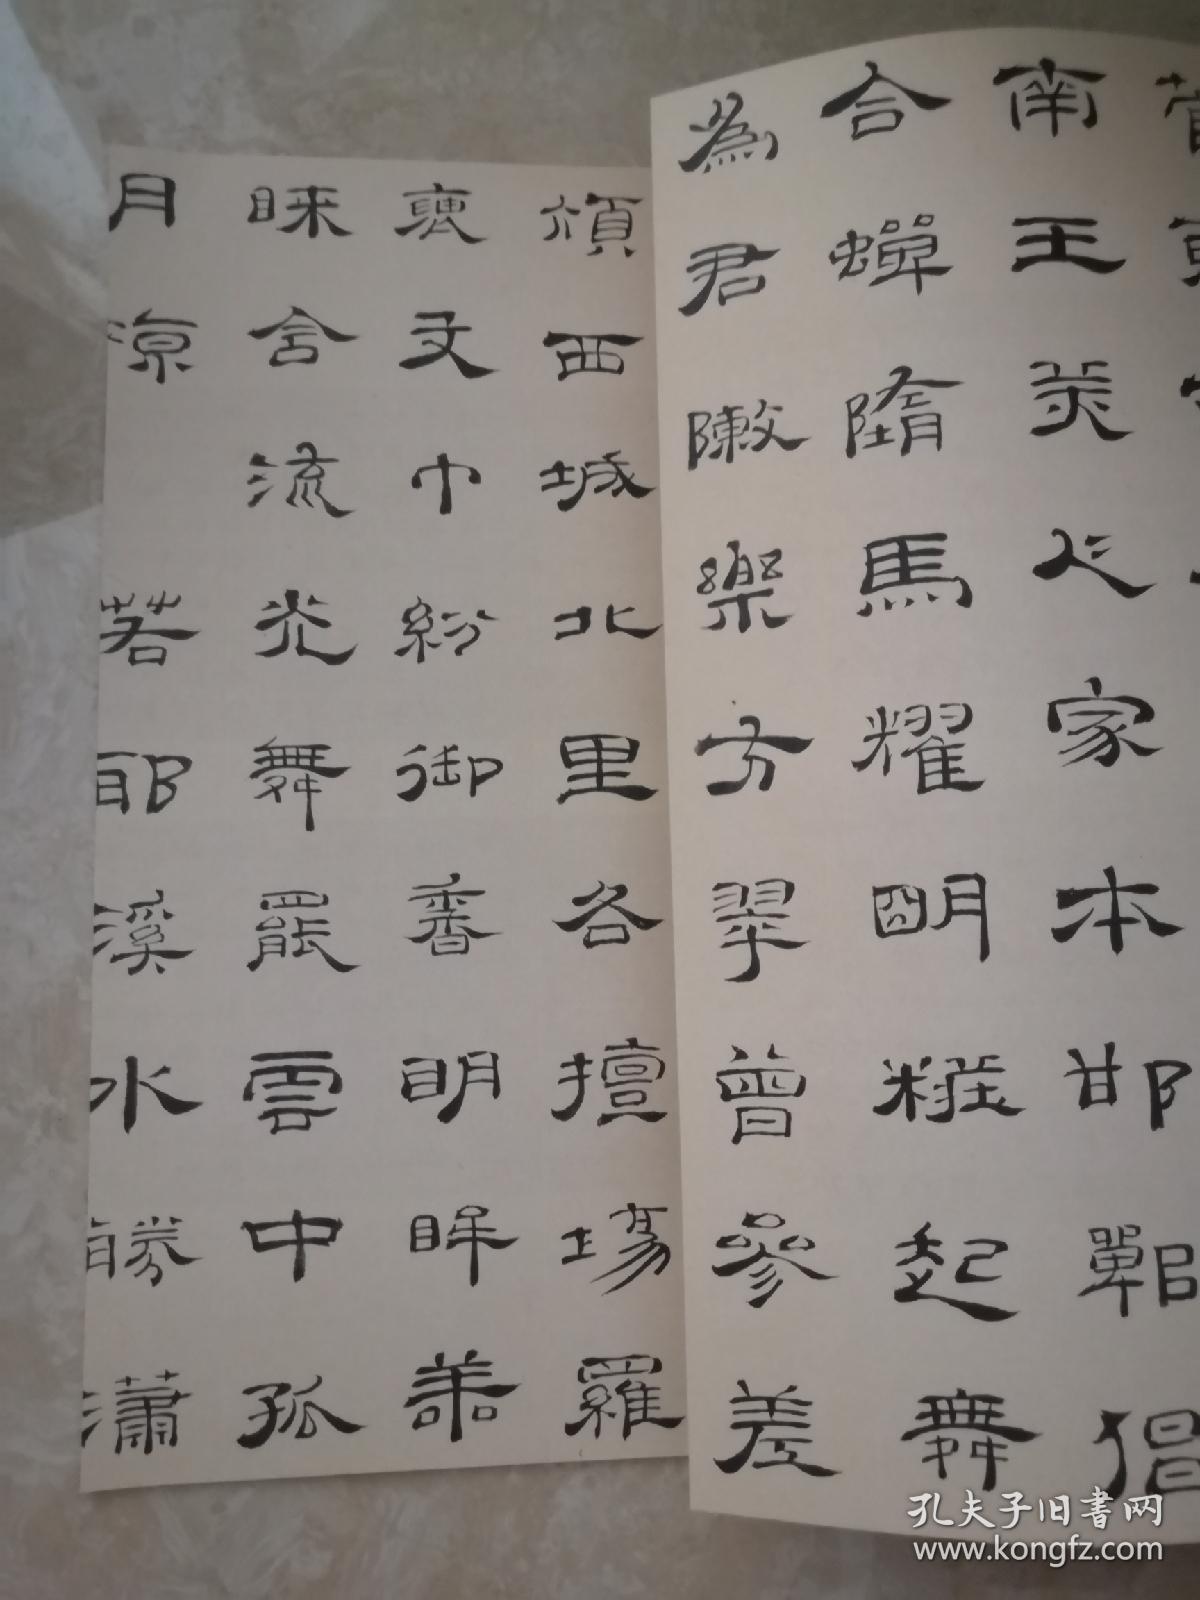 南王美人家本邯鄲倡
合蟬隋馬耀明糚起舞
為君敶樂方翠曾參差
傾西城北里各擅場羅
褏文巾紛御香明眸善
睞含流光舞罷雲中孤
月涼 若耶溪水勝瀟
孔夫子旧书网
www.kongfz.com